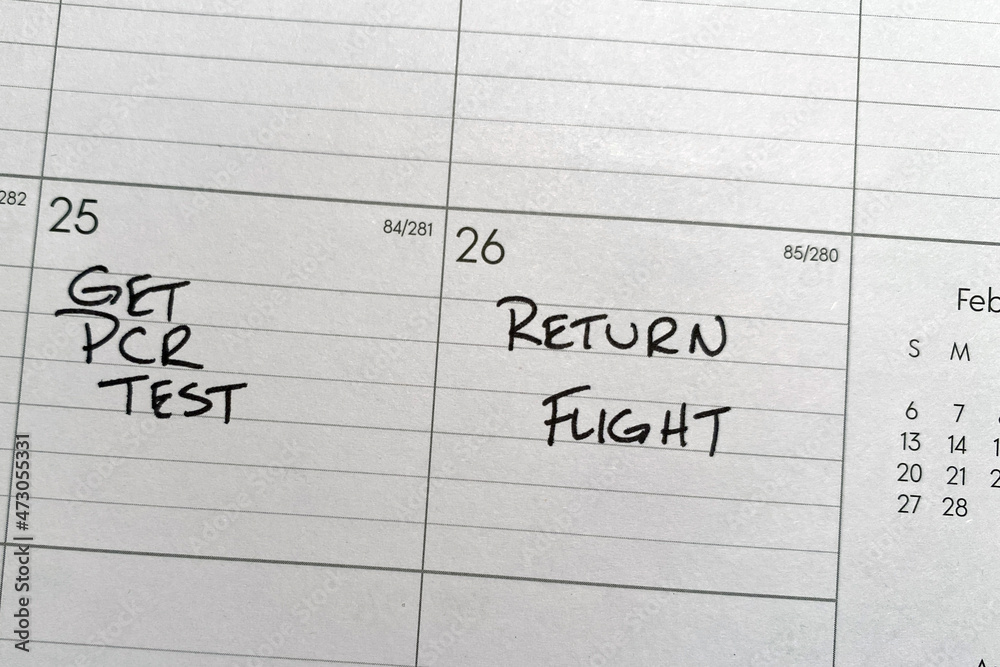 282
25 84/281
26 85/280
GET
PCR
TEST
RETURN
FLIGHT
Feb
S M
6 7
13 14 1
20 21 2
27 28
Adobe Stock | #473055331